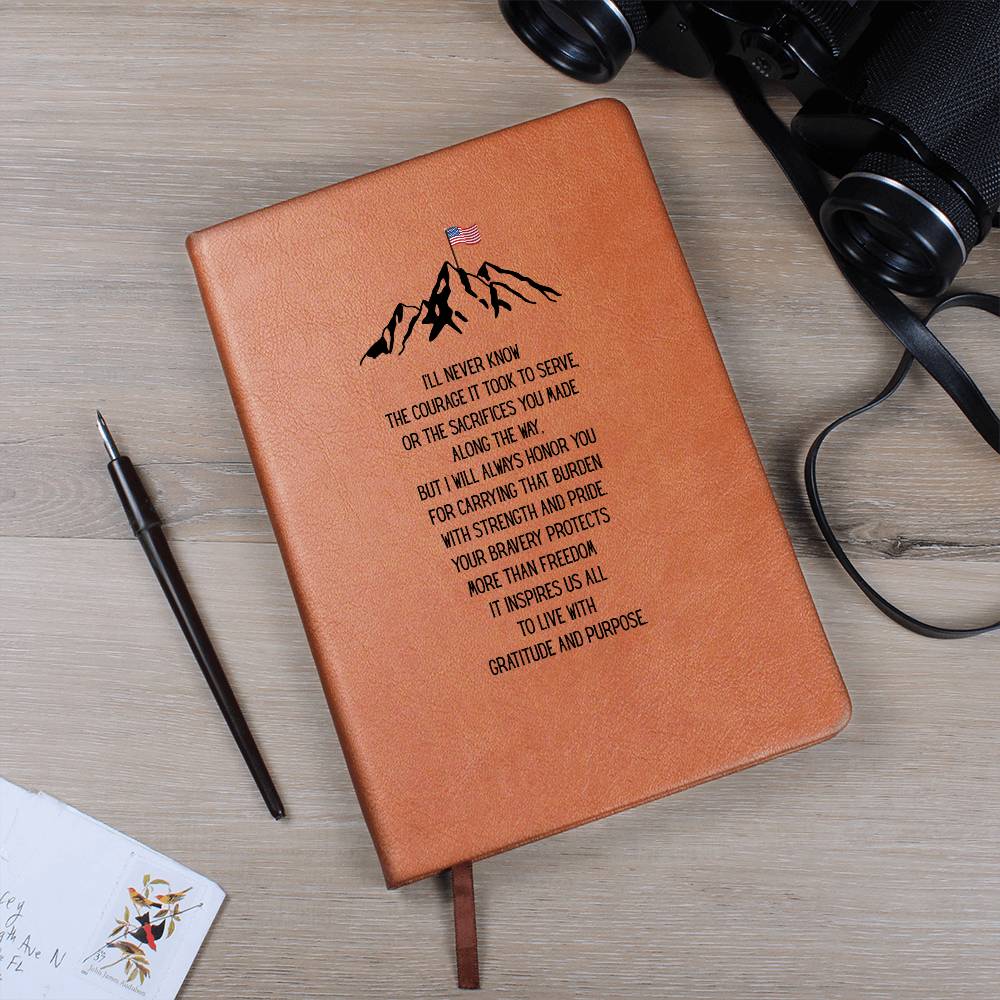 I'LL NEVER KNOW
THE COURAGE IT TOOK TO SERVE,
OR THE SACRIFICES YOU MADE
ALONG THE WAY.
BUT I WILL ALWAYS HONOR YOU
FOR CARRYING THAT BURDEN
WITH STRENGTH AND PRIDE.
YOUR BRAVERY PROTECTS
MORE THAN FREEDOM
IT INSPIRES US ALL
TO LIVE WITH
GRATITUDE AND PURPOSE.
Ave N
FL
37
John James Audubon